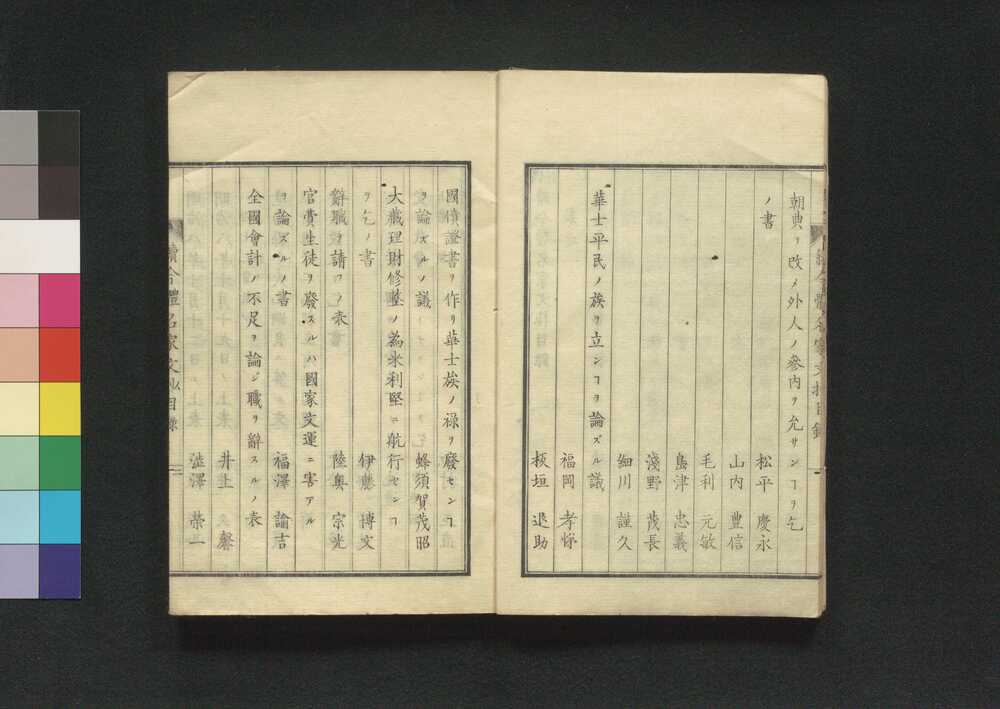 朝典ヲ改メ外人ノ參內ヲ允サンヿヲ乞
ノ書
松平 慶永
山內 豊信
毛利 元敏
島津 忠義
淺野 茂長
細川 謹久
華士平民ノ族ヲ立ンヿヲ論ズル議
福岡 孝悌
板垣 退助
國債證書ヲ作リ華士族ノ祿ヲ廢センヿ
ヲ論ズルノ議
蜂須賀茂昭
大藏理財修整ノ為米利堅ニ航行センヿ
ヲ乞ノ書
伊藤 博文
辭職ヲ請フノ表
陸奥 宗光
官費生徒ヲ廢スルハ國家文運ニ害アル
ヲ論ズルノ書
福澤 諭吉
全國會計ノ不足ヲ論ジ職ヲ辭スルノ表
井上 馨
澁澤 榮一
續今體名家文抄目錄